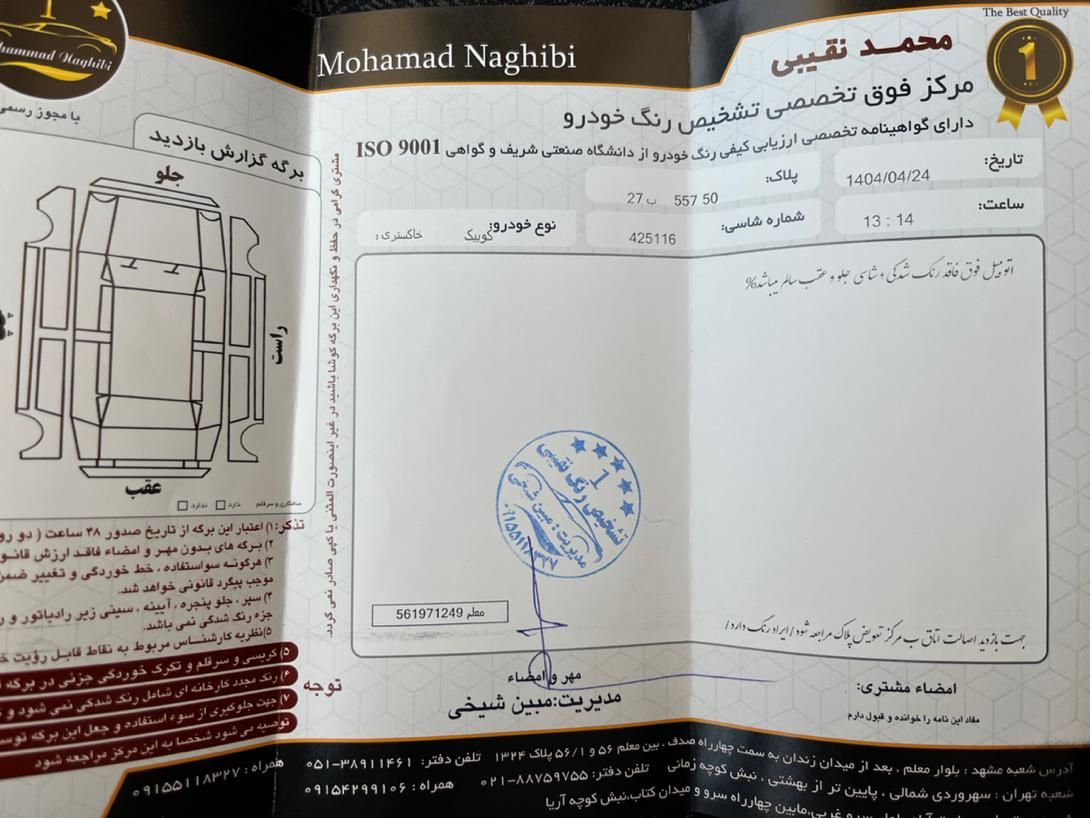 The Best Quality
1
Mohamad Naghibi
محمد نقیبی
مرکز فوق تخصصی تشخیص رنگ خودرو
دارای گواهینامه تخصصی ارزیابی کیفی رنگ خودرو از دانشگاه صنعتی شریف و گواهی ISO 9001
تاریخ: 1404/04/24
پلاک: 50 557 ب 27
ساعت: 13 : 14
شماره شاسی: 425116
نوع خودرو: کوییک خاکستری
اتومبیل فوق فاقد رنگ شدگی و شاسی جلو و عقب سالم میباشد%
تشخیص رنگ نقیبی
1
مدیریت: مبین شیخی
۰۹۱۵۵۱۱۸۳۲۷
معلم 561971249
جهت بازدید اصالت اتاق ب مرکز تعویض پلاک مراجعه شود/ایراد رنگ دارد/
مهر و امضاء
مدیریت:مبین شیخی
امضاء مشتری:
مفاد این نامه را خوانده و قبول دارم
مشتری گرامی در حفظ و نگهداری این برگه کوشا باشید در غیر اینصورت المثنی یا کپی صادر نمی گردد.
1
hammad Naghibi
با مجوز رسمی
برگه گزارش بازدید
جلو
راست
عقب
دارد
ندارد
تذکر: ۱) اعتبار این برگه از تاریخ صدور ۴۸ ساعت ( دو رو
۲) برگه های بدون مهر و امضاء فاقد ارزش قانو
۳) هرگونه سواستفاده ، خط خوردگی و تغییر ضمن
موجب پیگرد قانونی خواهد شد.
۴) سپر ، جلو پنجره ، آیینه ، سینی زیر رادیاتور و ر
جزء رنگ شدگی نمی باشد.
۵) نظریه کارشناس مربوط به نقاط قابل رؤیت خ
توجه
۵) گریسی و سرقلم و تکرک خوردگی جزئی در برگه
۶) رنگ مجدد کارخانه ای شامل رنگ شدگی نمی شود و
۷) جهت جلوگیری از سوء استفاده و جعل این برگه توس
توصیه می شود شخصا به این مرکز مراجعه شود
آدرس شعبه مشهد : بلوار معلم ، بعد از میدان زندان به سمت چهارراه صدف ، بین معلم ۵۶ و ۵۶/۱ پلاک ۱۳۲۴ تلفن دفتر: ۳۸۹۱۱۴۶۱-۰۵۱ همراه : ۰۹۱۵۵۱۱۸۳۲۷
شعبه تهران : سهروردی شمالی ، پایین تر از بهشتی ، نبش کوچه زمانی تلفن دفتر: ۸۸۷۵۹۷۵۵-۰۲۱ همراه : ۰۹۱۵۴۲۹۹۱۰۶
مابین چهارراه سرو و میدان کتاب،نبش کوچه آریا